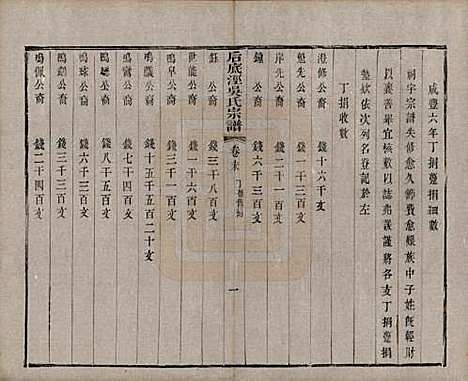 咸豐六年丁捐躉捐細數
祠宇宗譜失修愈久篩費愈艱族中子姓旣輕財
以義善畢宜核歸寔以誌美謹將各支丁捐躉捐
欵依次列名登記於左
丁捐收數
澄修公裔 錢十六千文
魁先公裔 錢三十千文
岸先公裔 錢二十一千文
鐘公裔 錢六千三百文
后底涇吳氏宗譜 卷末 一
鈺公裔 錢三千八百文
世能公裔 錢一千六百文
鳴皐公裔 錢三千五百文
鳴公裔 錢十五千五百二十文
鳴鸞公裔 錢七千三百文
鳴公裔 錢八千五百文
鳴球公裔 錢六千三百文
鳴公裔 錢三千三百文
鳴佩公裔 錢二千四百文